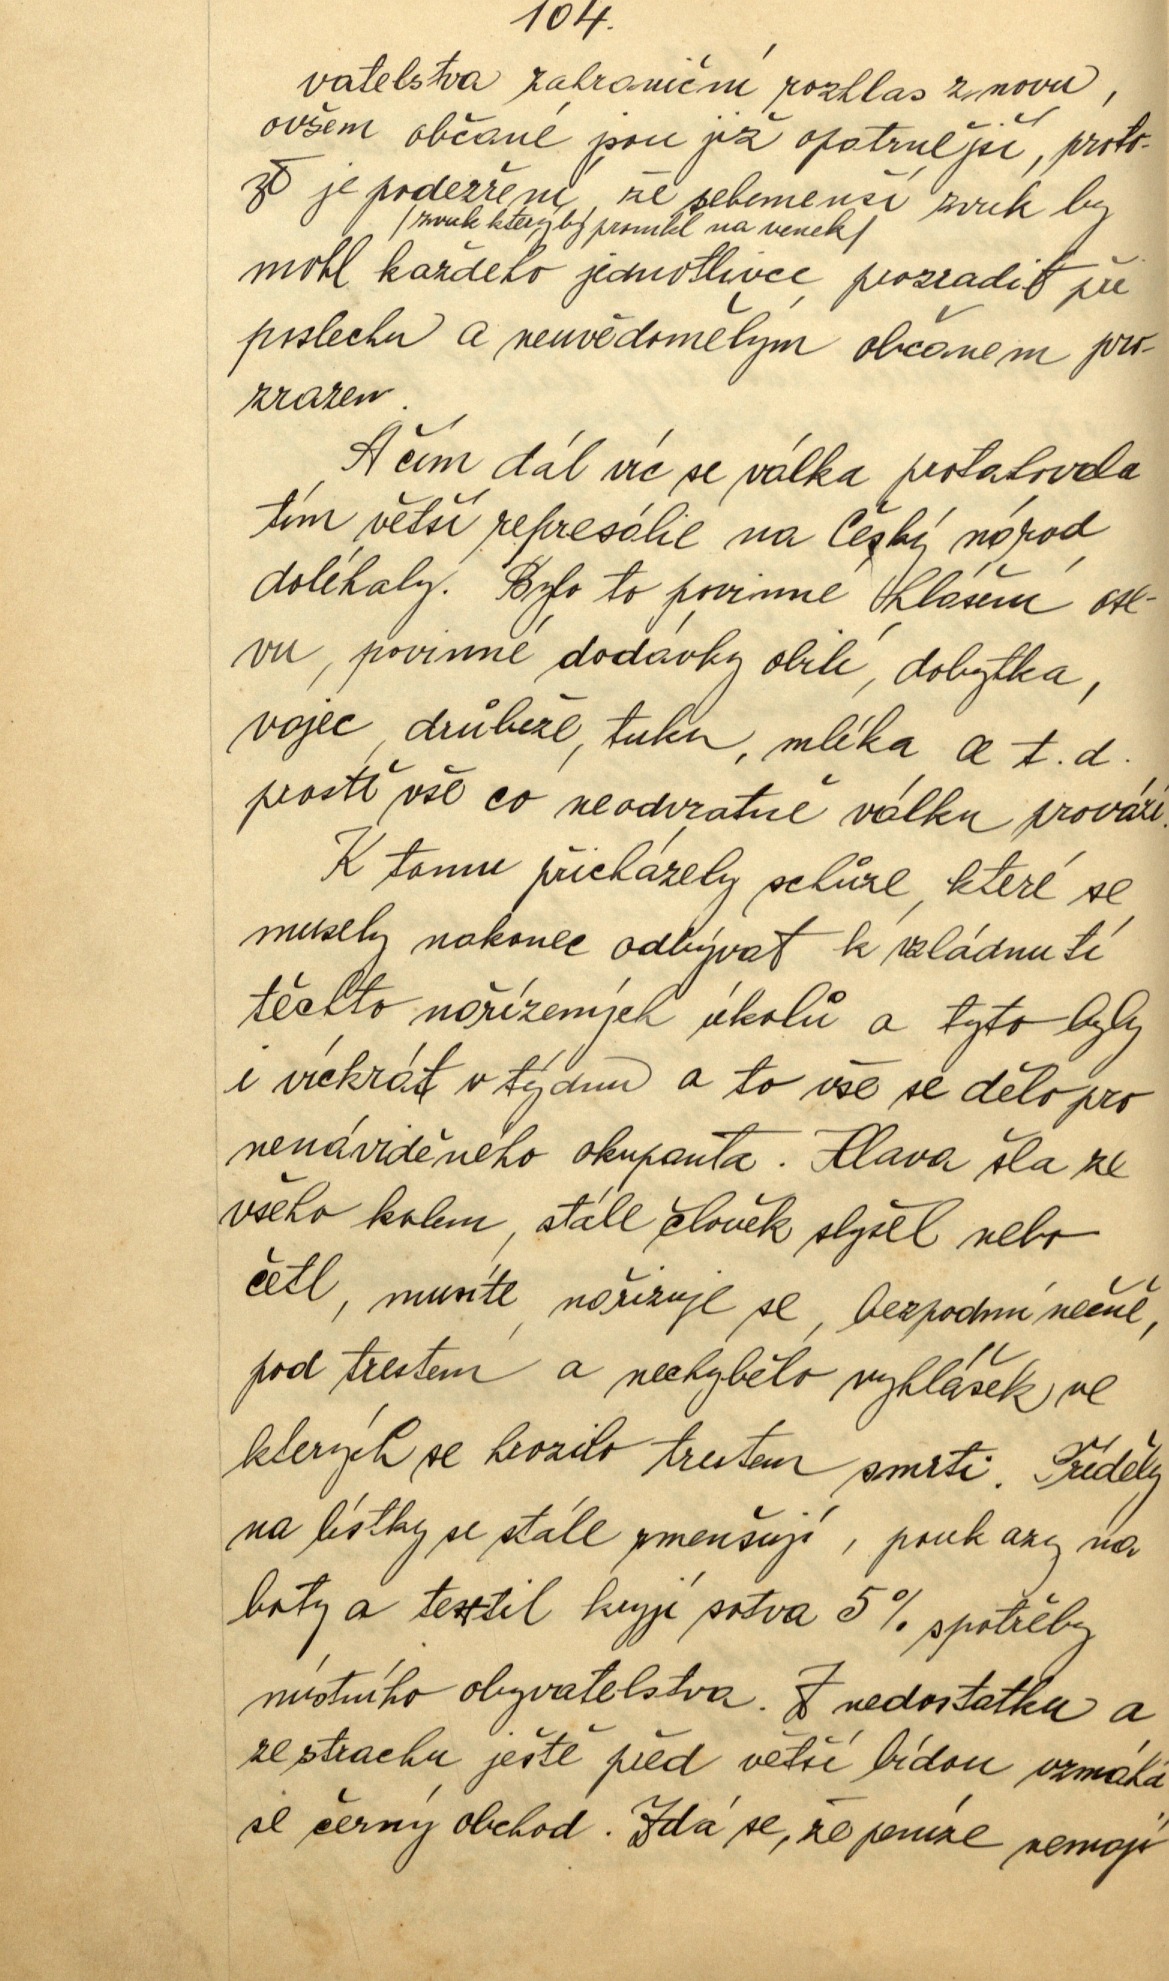 104.
vatelstva zahraniční rozhlas znovu,
ovšem občané jsou již opatrnější, proto-
že je podezření, že sebemenší zvuk by
/zvuk který by pronikl na venek/
mohl každého jednotlivce prozradit při
poslechu a neuvědomělým občanem pro-
zrazen.
A čím dál víc se válka protahovala
tím větší represálie na Český národ
doléhaly. Bylo to povinné hlášení ose-
vu, povinné dodávky obilí, dobytka,
vajec, drůbeže, tuku, mléka a t.d.
prostě vše co neodvratně válku provází.
K tomu přicházely schůze, které se
musely nakonec odbývat k vzládnutí
těchto nařízených úkolů a tyto byly
i víckrát v týdnu a to vše se dělo pro
nenáviděného okupanta. Hlava šla ze
všeho kolem, stále člověk slyšel nebo
četl, musíte, nařizuje se, bezpodmínečně,
pod trestem a nechybělo vyhlášek, ve
kterých se hrozilo trestem smrti. Příděly
na lístky se stále zmenšují, poukazy na
boty a textil kryjí sotva 5% spotřeby
místního obyvatelstva. Z nedostatku a
ze strachu ještě před větší bídou vzmáhá
se černý obchod. Zdá se, že peníze nemají